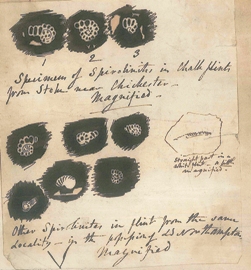 1 2 3
Specimens of Spirolinites in Chalk flints
from Stoke near Chichester.
Magnified.
straight part in a
white flint. a little
magnified.
Other Spirolinites in flint from the same
locality – in the possession of Northampton
Magnified